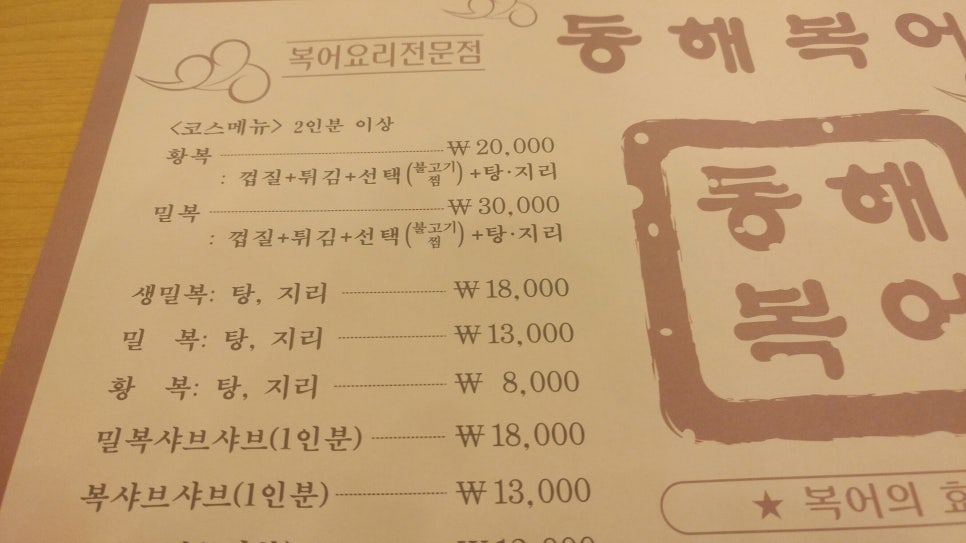 복어요리전문점
동해복어
<코스메뉴> 2인분 이상
황복 ₩ 20,000
: 껍질+튀김+선택(불고기 찜)+탕·지리
밀복 ₩ 30,000
: 껍질+튀김+선택(불고기 찜)+탕·지리
생밀복: 탕, 지리 ₩ 18,000
밀 복: 탕, 지리 ₩ 13,000
황 복: 탕, 지리 ₩ 8,000
밀복샤브샤브(1인분) ₩ 18,000
복샤브샤브(1인분) ₩ 13,000
동해
복어
★ 복어의